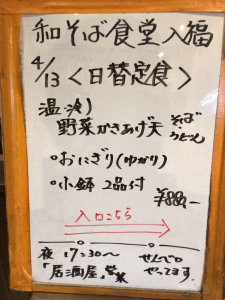 和そば食堂 入福
4/13 <日替定食>
温・冷)
野菜かきあげ天 そば うどん
○おにぎり(ゆかり)
○小鉢 2品付
¥880,-
入口こちら
夜 17:30〜
「居酒屋」営業
せんべろ
やってます。